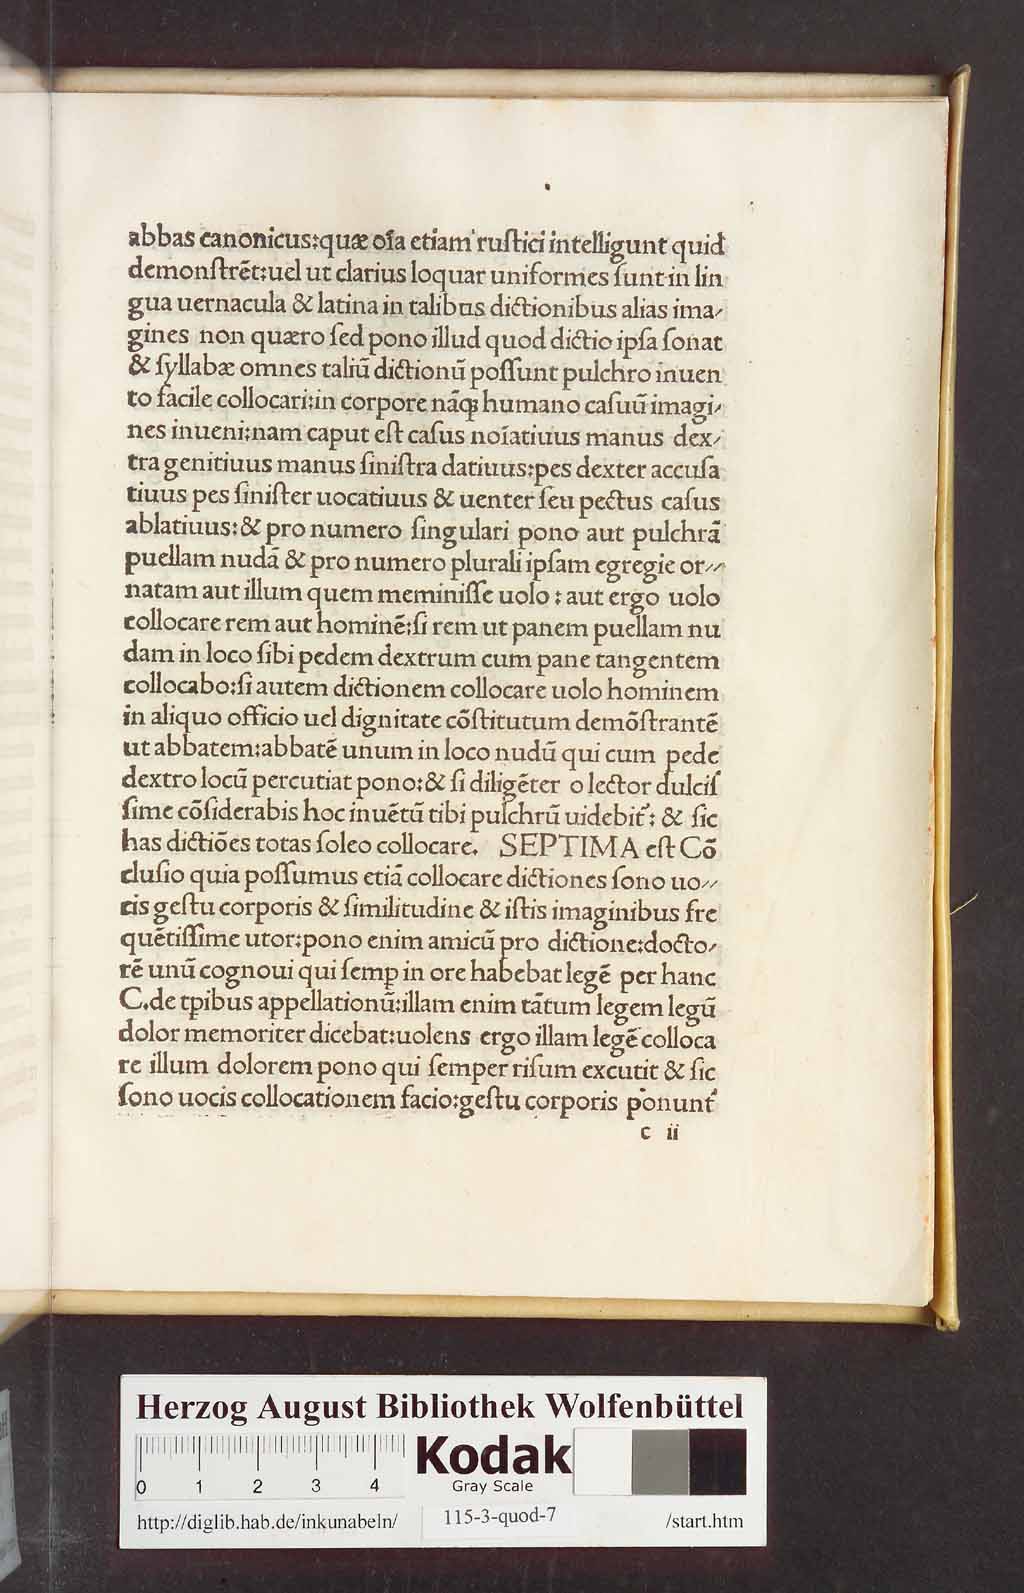 abbas canonicus:quæ oīa etiam rustici intelligunt quid
demonstrēt:uel ut clarius loquar uniformes sunt in lin
gua uernacula & latina in talibus dictionibus alias ima-
gines non quæro sed pono illud quod dictio ipsa sonat
& syllabæ omnes taliū dictionū possunt pulchro inuen
to facile collocari:in corpore nāqꝫ humano casuū imagi-
nes inueni:nam caput est casus noīatiuus manus dex-
tra genitiuus manus sinistra datiuus:pes dexter accusa
tiuus pes sinister uocatiuus & uenter seu pectus casus
ablatiuus:& pro numero singulari pono aut pulchrā
puellam nudā & pro numero plurali ipsam egregie or--
natam aut illum quem meminisse uolo : aut ergo uolo
collocare rem aut hominē:si rem ut panem puellam nu
dam in loco sibi pedem dextrum cum pane tangentem
collocabo:si autem dictionem collocare uolo hominem
in aliquo officio uel dignitate cōstitutum demōstrantē
ut abbatem:abbatē unum in loco nudū qui cum pede
dextro locū percutiat pono:& si diligēter o lector dulcis
sime cōsiderabis hoc inuētū tibi pulchrū uidebit᷑: & sic
has dictiōes totas soleo collocare. SEPTIMA est Cō
clusio quia possumus etiā collocare dictiones sono uo--
cis gestu corporis & similitudine & istis imaginibus fre
quētissime utor:pono enim amicū pro dictione:docto-
rē unū cognoui qui semꝑ in ore habebat legē per hanc
C.de tꝑibus appellationū:illam enim tātum legem legū
dolor memoriter dicebat:uolens ergo illam legē colloca
re illum dolorem pono qui semper risum excutit & sic
sono uocis collocationem facio:gestu corporis ponunt᷑
c ii
Herzog August Bibliothek Wolfenbüttel
0 1 2 3 4
Kodak
Gray Scale
http://diglib.hab.de/inkunabeln/
115-3-quod-7
/start.htm